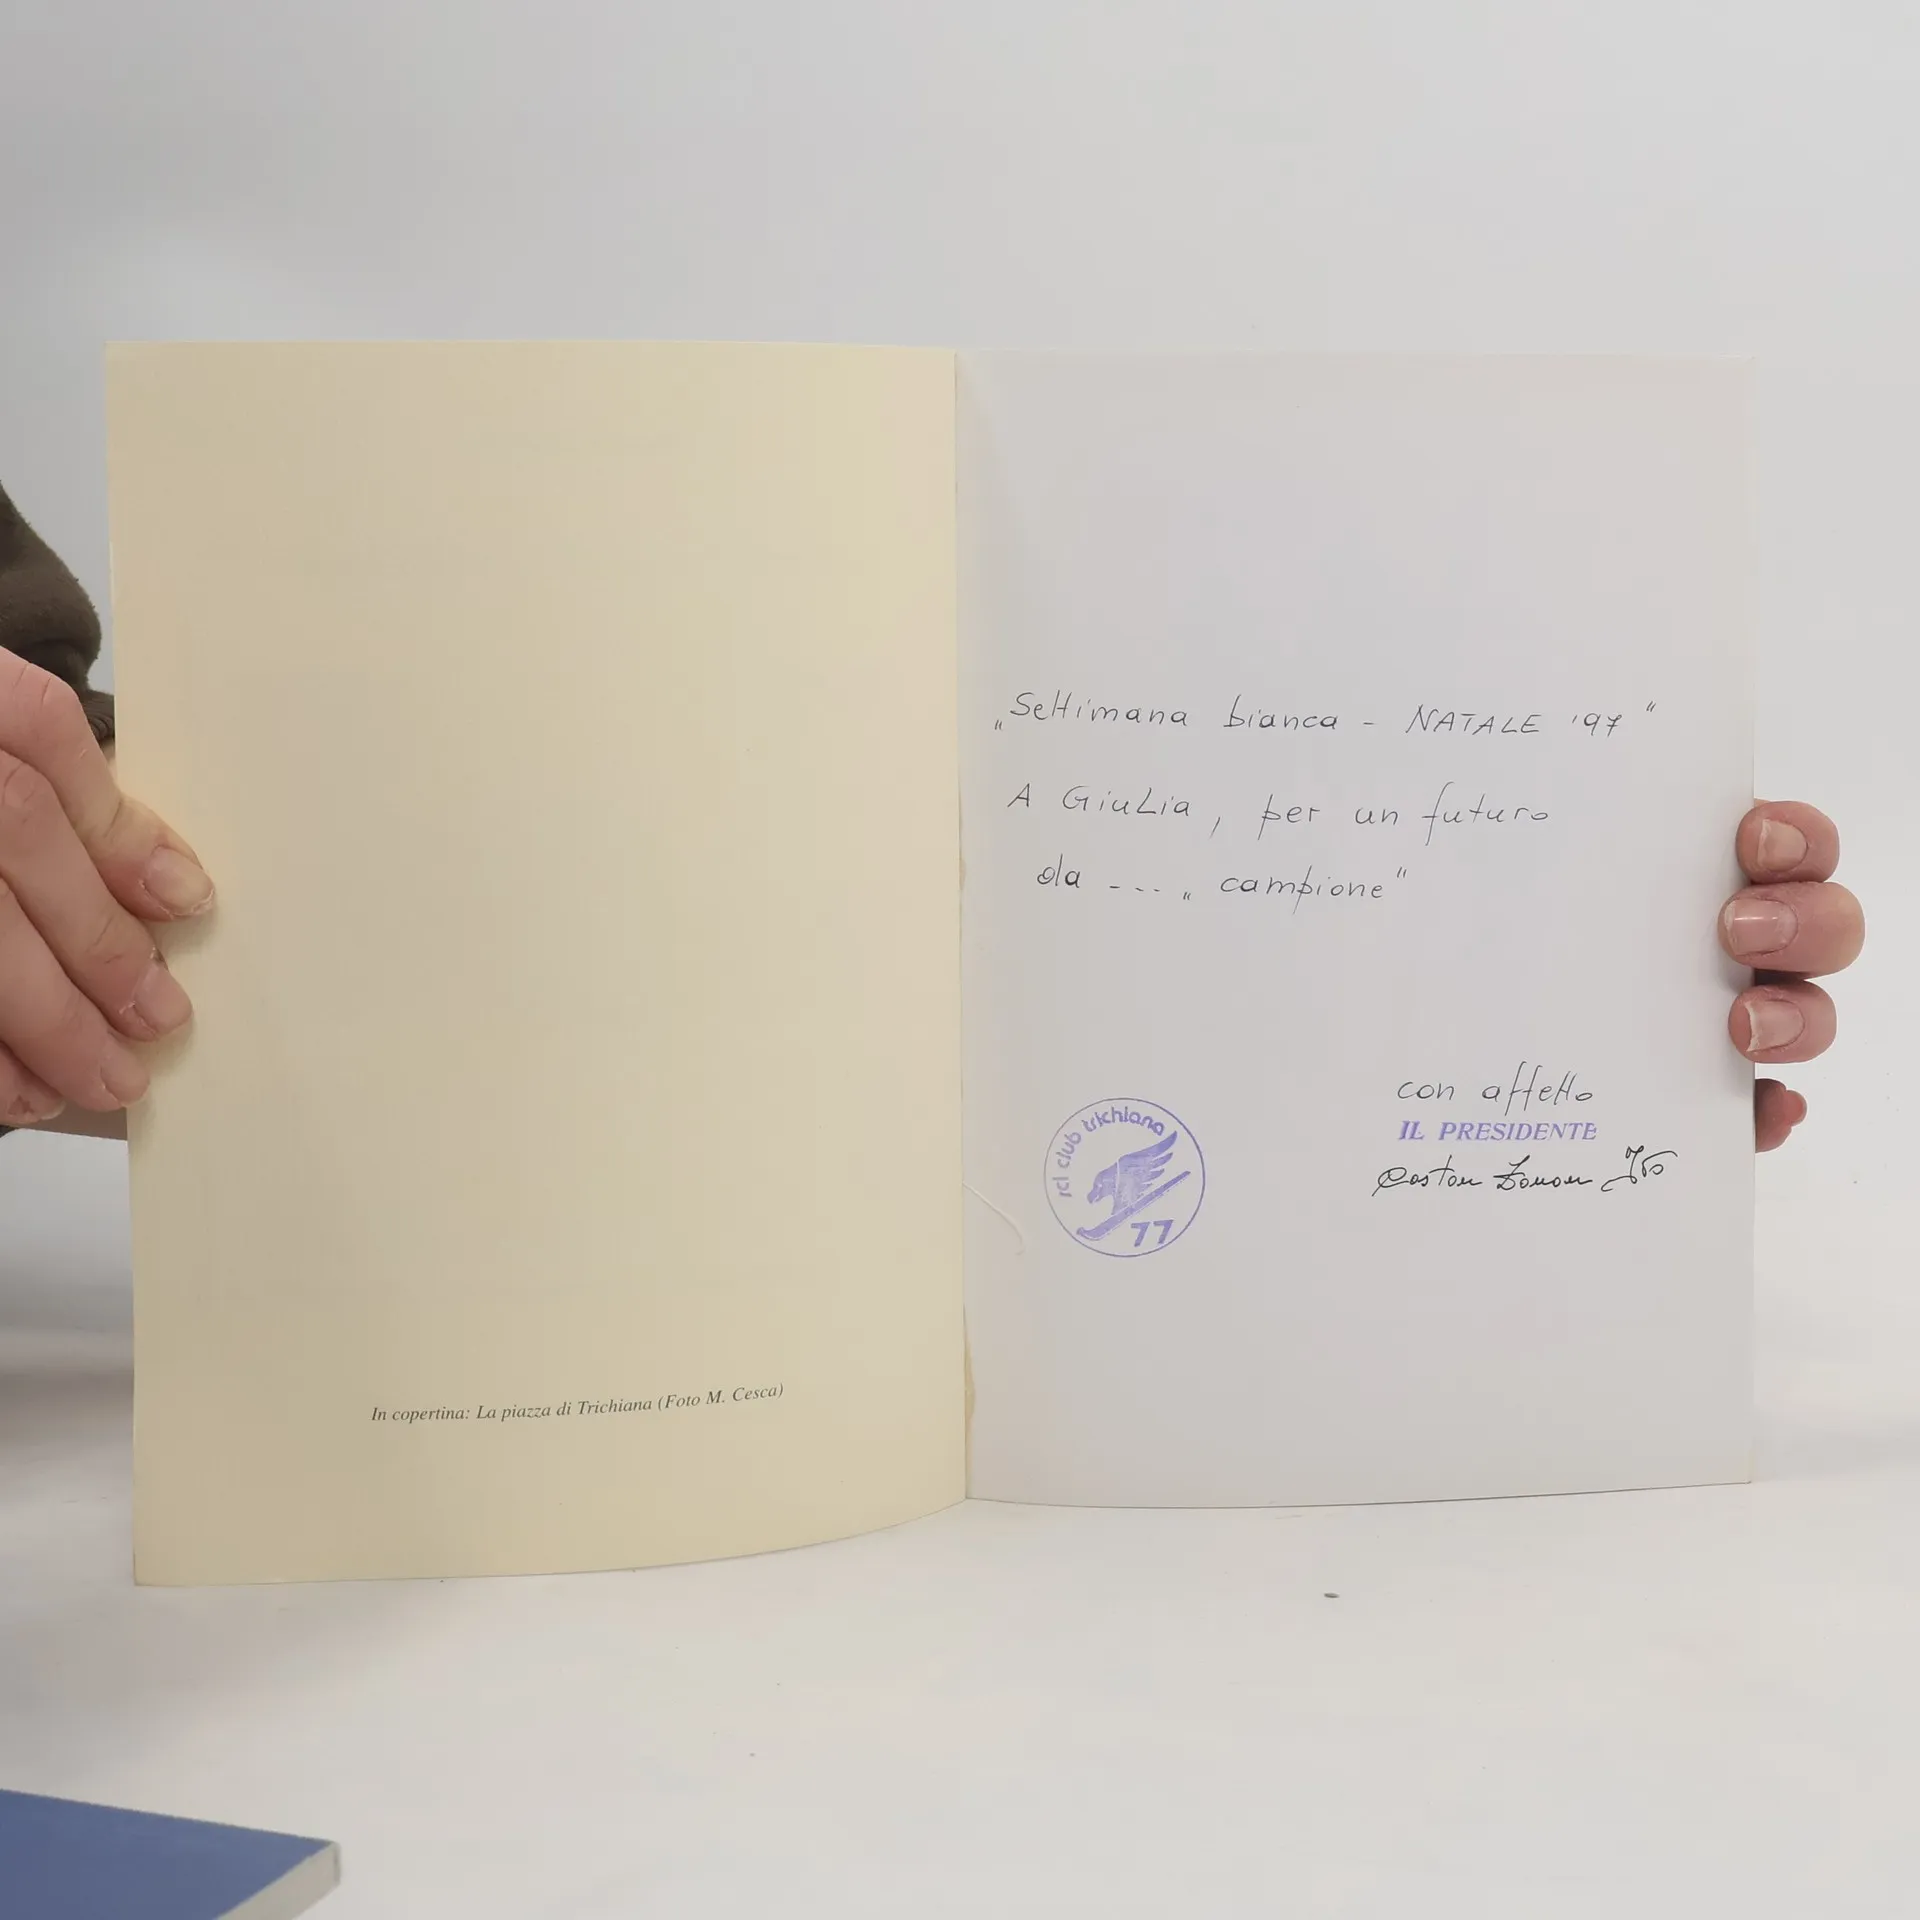 In copertina: La piazza di Trichiana (Foto M. Cesca)
„Settimana bianca - NATALE '97"
A GiuLia, per un futuro
da --- „campione"
con affetto
IL PRESIDENTE
sci club trichiana
77